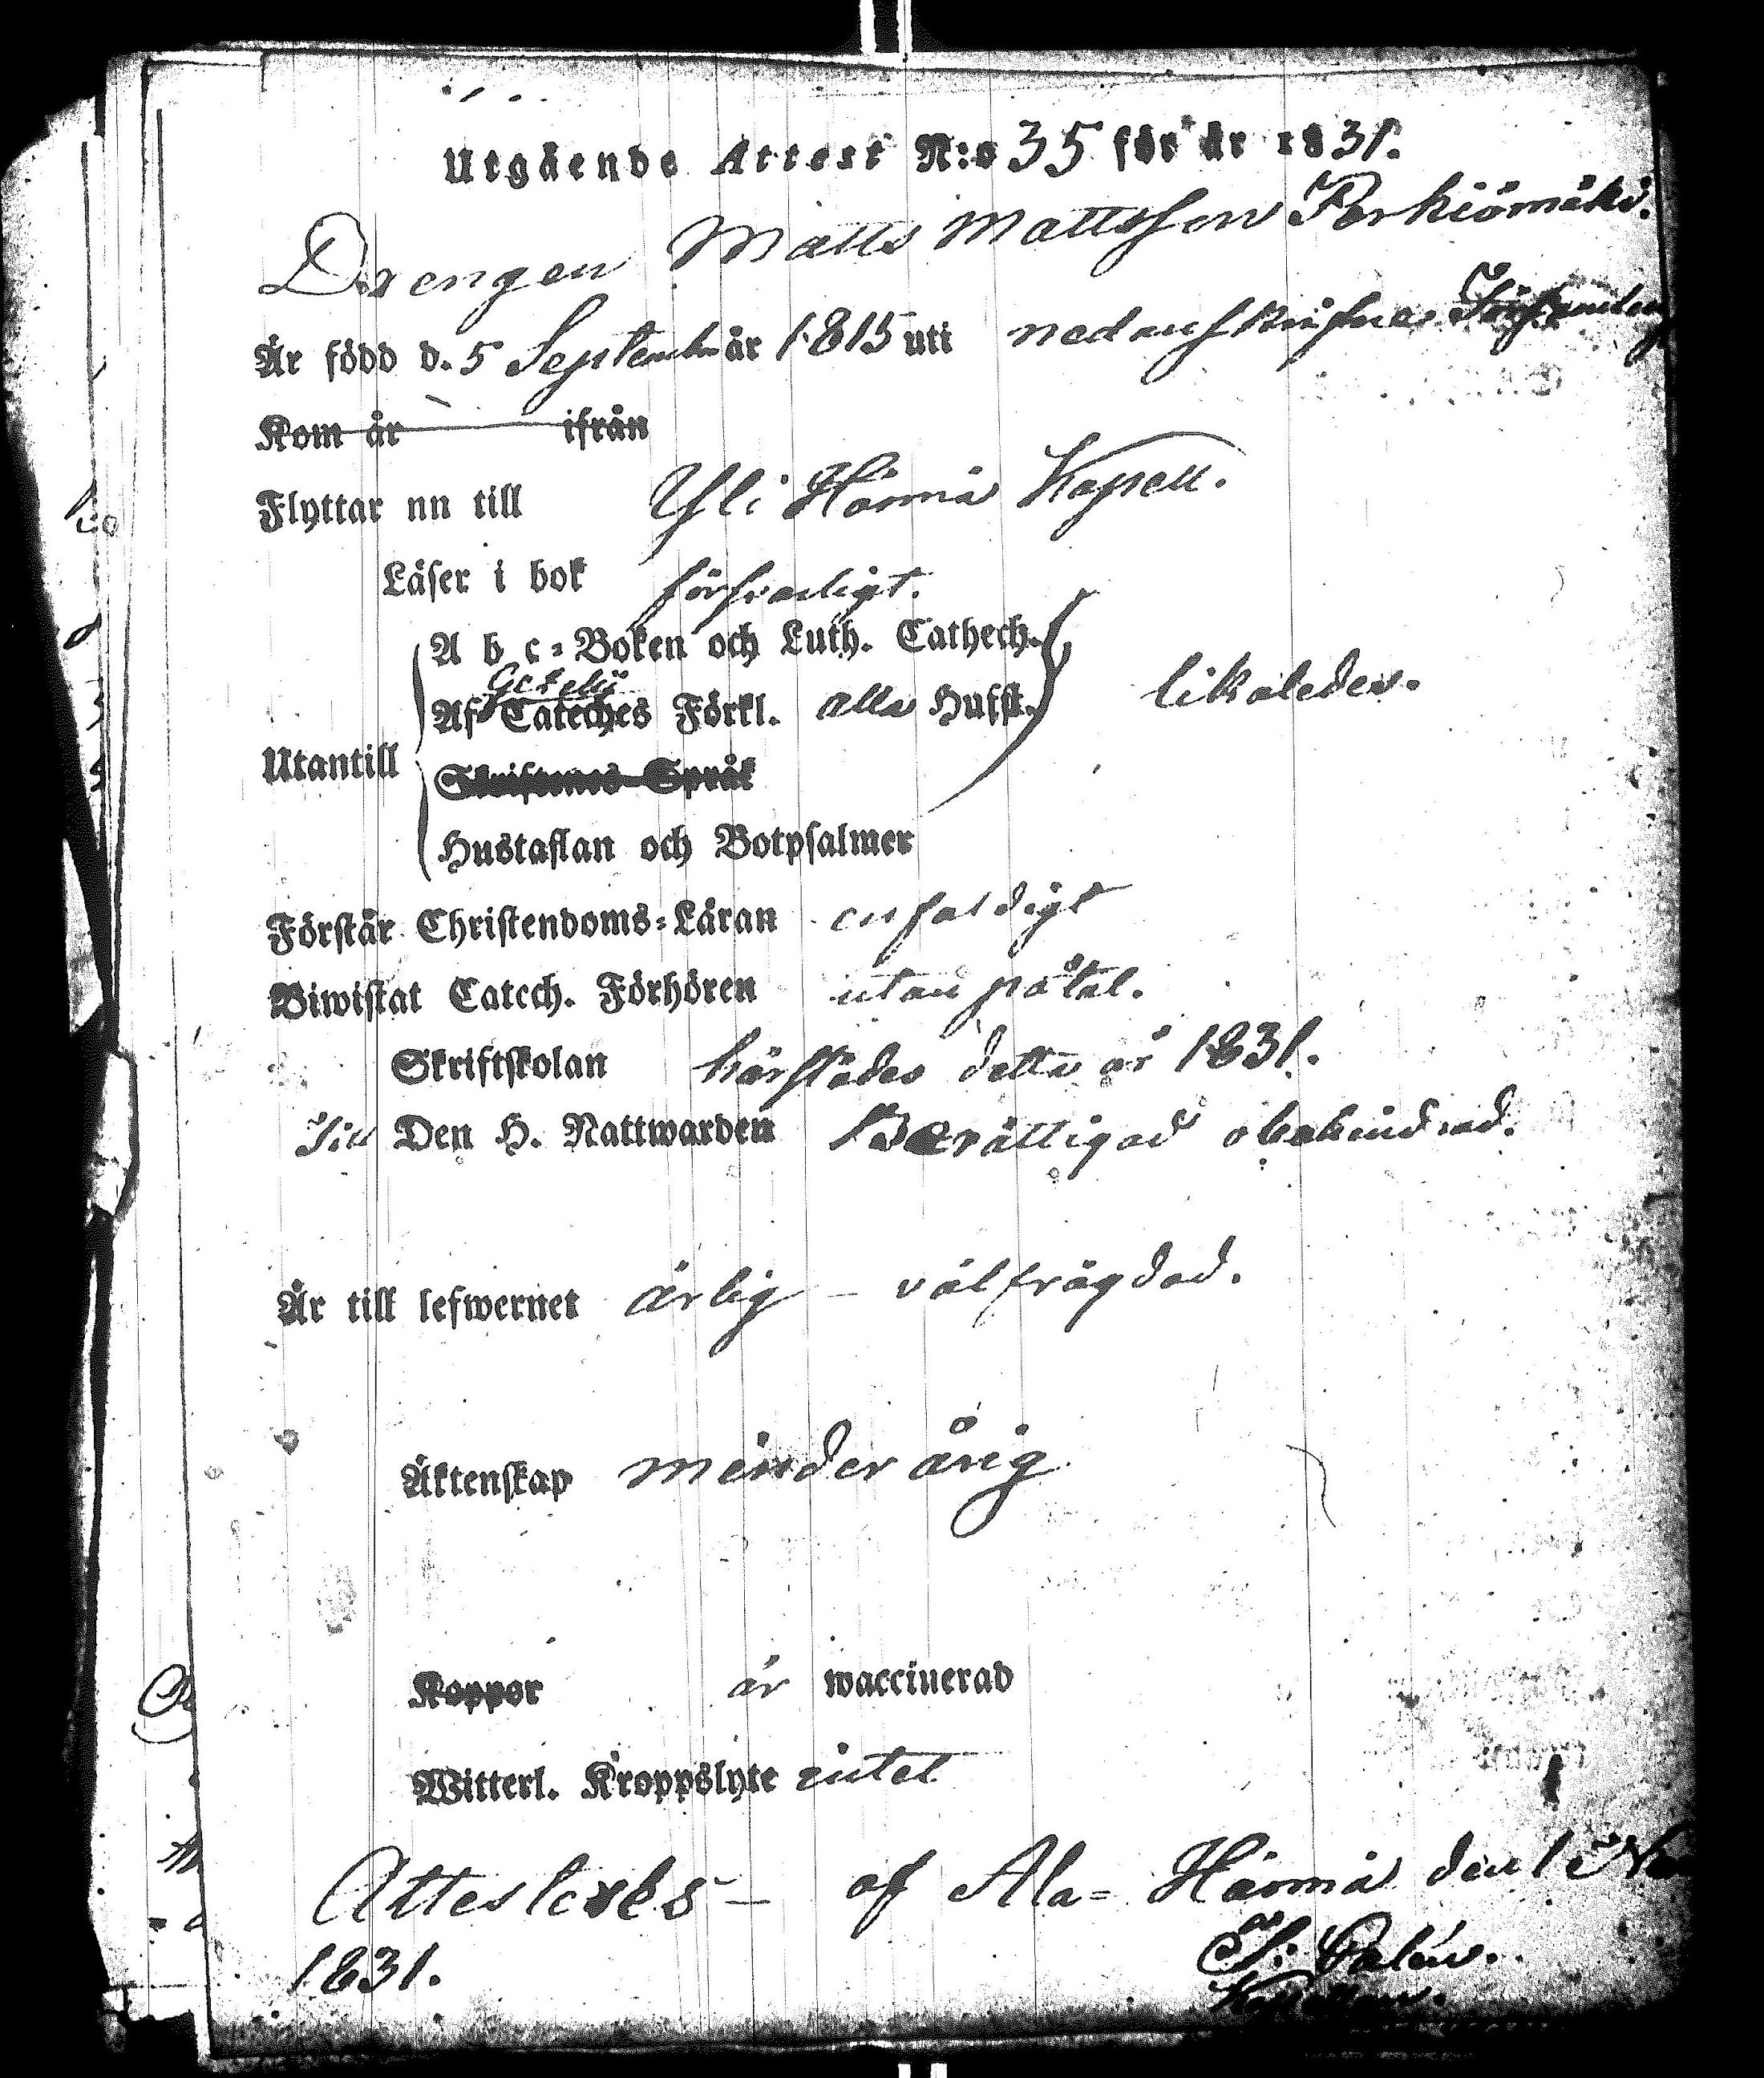 Utgående Attest N:o 35 för år 1831.
Drengen Matts Mattsson Perkiömäki.
Är född d. 5 September år 1815 uti nedanskrifne Församling
Kom år ifrån
Flyttar nu till Yli Härmä Kapell.
Läser i bok försvarligt.
A b c-Boken och Luth. Cathech.
Gezelii
Af Cateches Förkl. alla Hufst. likaledes.
Utantill
Skriftenes Språk
Hustaflan och Botpsalmer
Förstår Christendoms-Läran enfaldigt
Biwistat Catech. Förhören utan påtal.
Skriftskolan härstädes detta år 1831.
Till Den H. Nattwarden Berättigad obehindrad.
Är till lefwernet ärlig - välfrägdad.
Äktenskap minderårig
Koppor är waccinerad
Witterl. Kroppslyte intet
Attesteres - af Ala-Härmä den 1
1831.